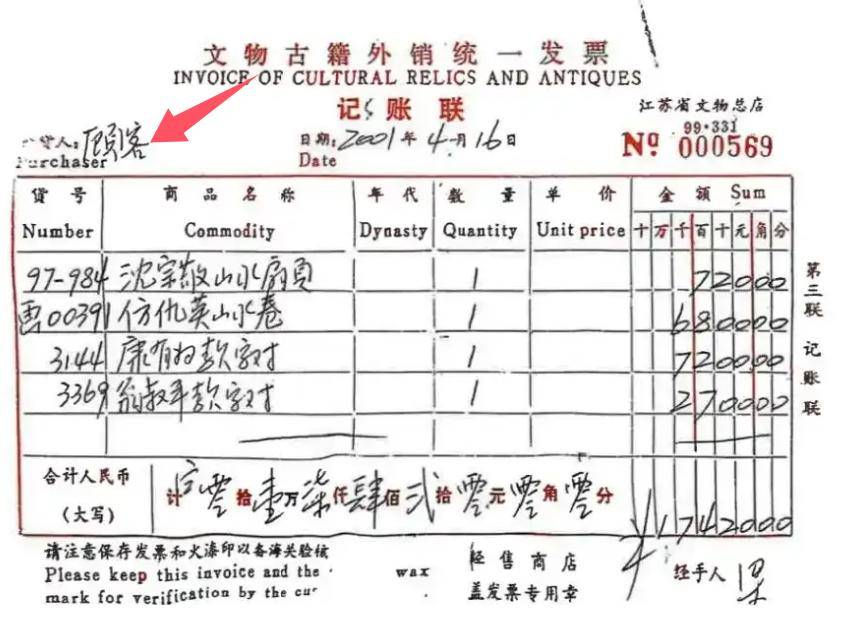 文物古籍外销统一发票
INVOICE OF CULTURAL RELICS AND ANTIQUES
记账联
江苏省文物总店
99·331
货人：顾客
Purchaser
日期：2001年4月16日
Date
Nº 000569
货号 商品名称 年代 数量 单价 金额 Sum
Number Commodity Dynasty Quantity Unit price 十万千百十元角分
97-984 沈宗敬山水扇页 1 72000
画00391 仿仇英山水卷 1 680000
3144 康有为款字对 1 720000
3369 翁叔平款字对 1 270000
第三联 记账联
合计人民币
（大写）
计 零拾壹万柒仟肆佰贰拾零元零角零分 ¥1742000
请注意保存发票和火漆印以备海关验核
Please keep this invoice and the wax
mark for verification by the
经售商店
盖发票专用章
经手人